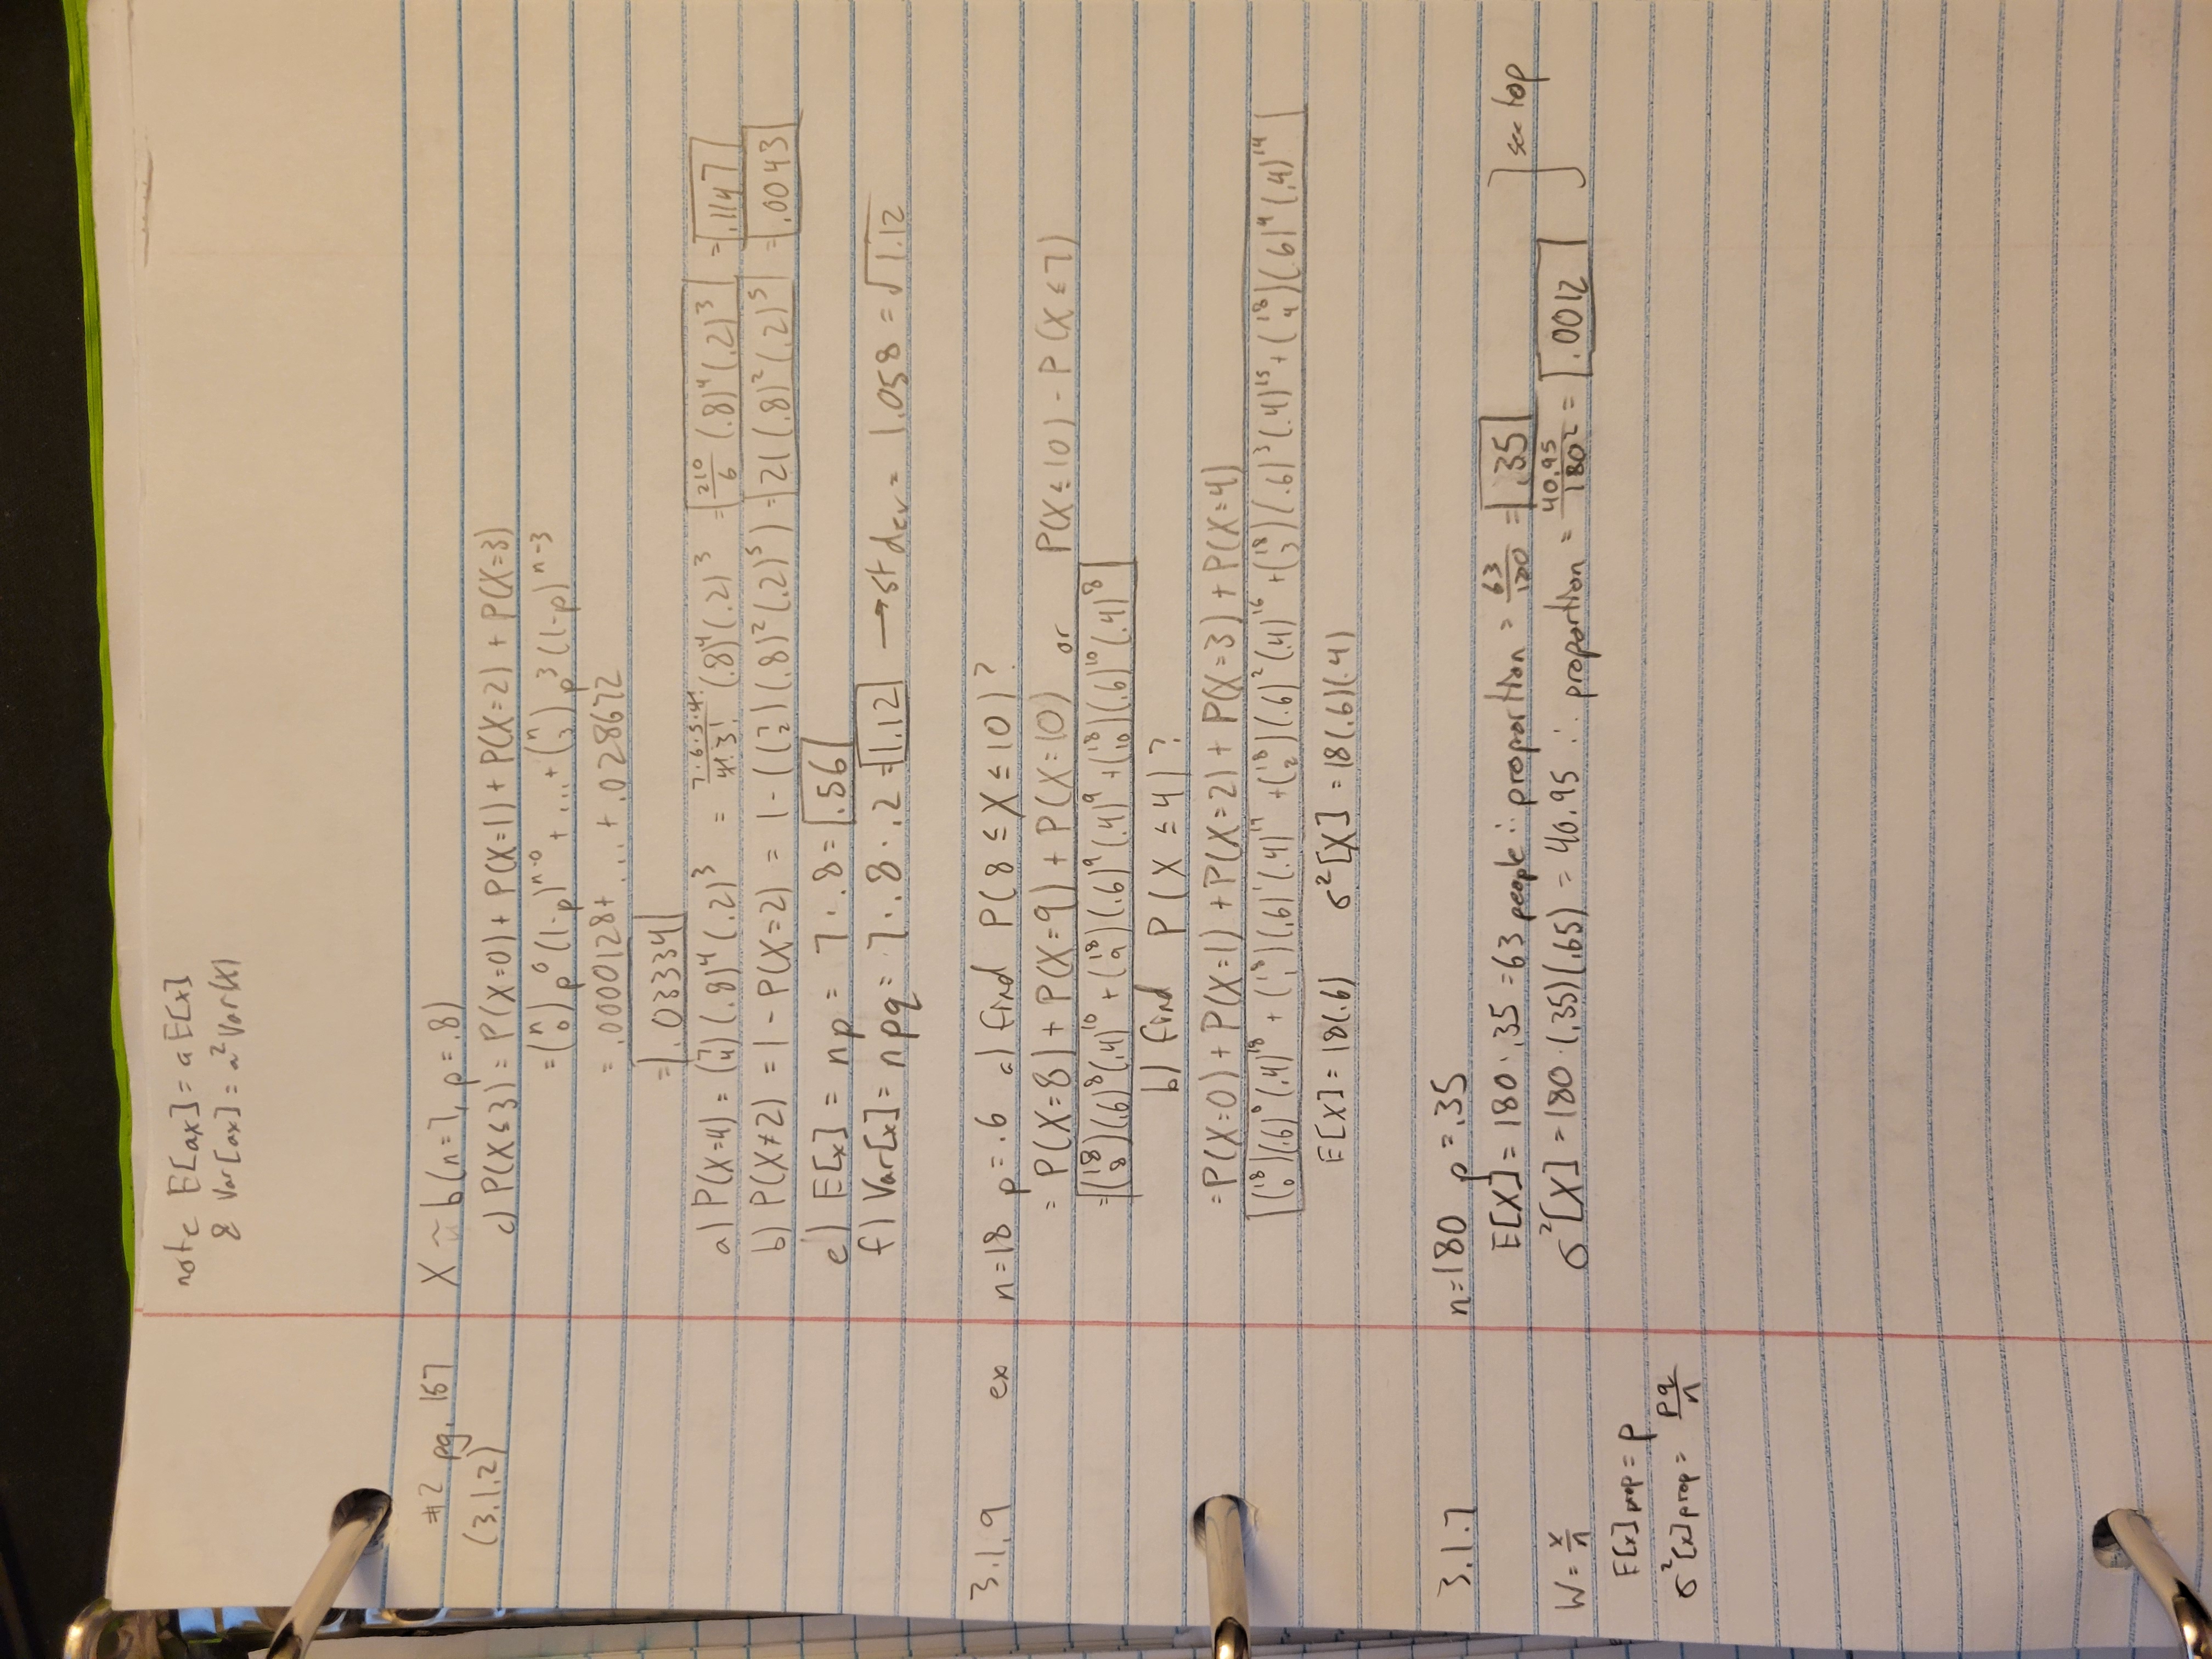 note E[ax] = a E[x]
& Var[ax] = a² Var(X)
#2 pg. 157 X ~ b(n=7, p=.8)
(3.1.2) c) P(X≤3) = P(X=0) + P(X=1) + P(X=2) + P(X=3)
= (n 0) p⁰ (1-p)ⁿ⁻⁰ + ... + (n 3) p³ (1-p)ⁿ⁻³
= .0000128 + ... + .028672
= .03334
a) P(X=4) = (7 4) (.8)⁴ (.2)³ = 7·6·5·4!/4!·3! (.8)⁴ (.2)³ = 210/6 (.8)⁴ (.2)³ = .1147
b) P(X≠2) = 1 - P(X=2) = 1 - ((7 2)(.8)²(.2)⁵) = 21(.8)²(.2)⁵ = .0043
e) E[x] = np = 7 · .8 = .56
f) Var[x] = npq = 7 · .8 · .2 = 1.12 → st dev = 1.058 = √1.12
3.1.9 ex n=18 p=.6 a) find P(8 ≤ X ≤ 10)?
= P(X=8) + P(X=9) + P(X=10) or P(X ≤ 10) - P(X ≤ 7)
= (18 8)(.6)⁸(.4)¹⁰ + (18 9)(.6)⁹(.4)⁹ + (18 10)(.6)¹⁰(.4)⁸
b) find P(X ≤ 4)?
= P(X=0) + P(X=1) + P(X=2) + P(X=3) + P(X=4)
(18 0)(.6)⁰(.4)¹⁸ + (18 1)(.6)¹(.4)¹⁷ + (18 2)(.6)²(.4)¹⁶ + (18 3)(.6)³(.4)¹⁵ + (18 4)(.6)⁴(.4)¹⁴
E[X] = 18(.6) σ²[X] = 18(.6)(.4)
3.1.7 n=180 p=.35
E[X] = 180·.35 = 63 people ∴ proportion = 63/180 = .35 see top
W = x/n σ²[X] = 180·(.35)(.65) = 40.95 ∴ proportion = 40.95/180² = .0012
E[x] prop = p
σ²[x] prop = pq/n